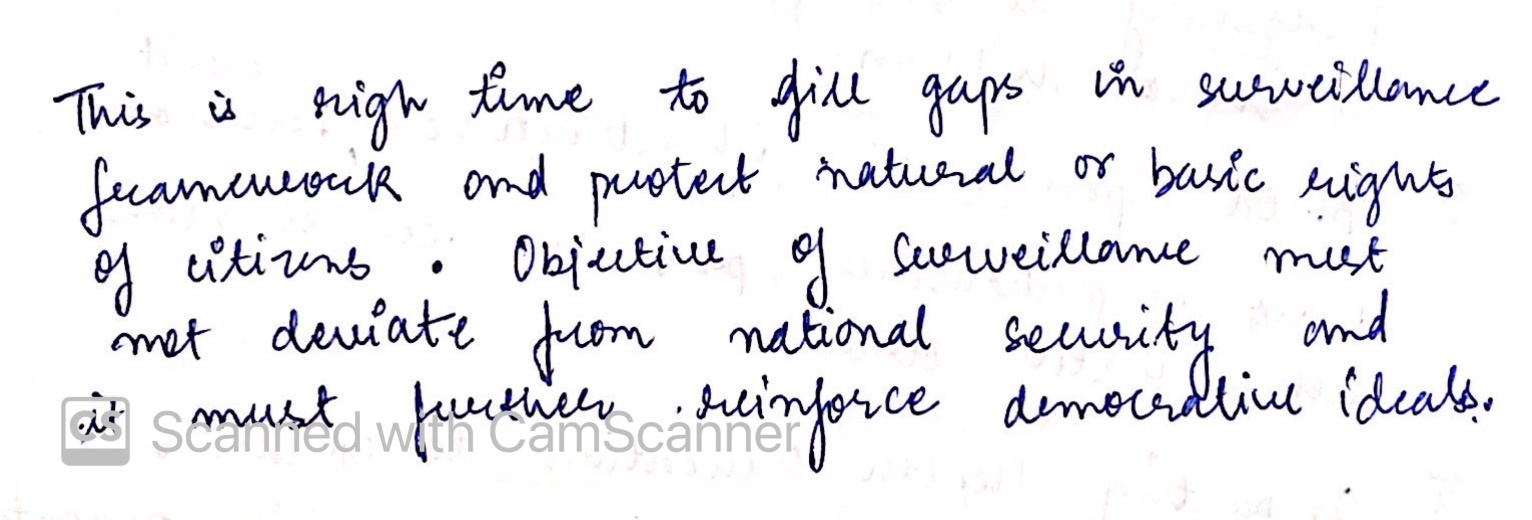 This is righ time to fill gaps in surveillance
framework and protect natural or basic rights
of citizens . Objective of Surveillance must
not deviate from national security and
it must further reinforce democrative ideals.
CS Scanned with CamScanner